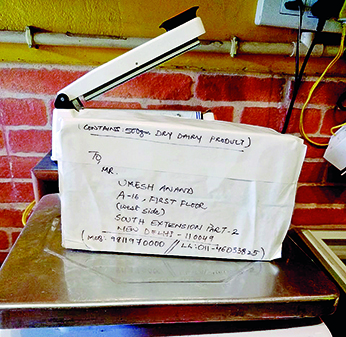 (CONTAINS: 500gm DRY DAIRY PRODUCT)
TO
MR.
UMESH ANAND
A-16, FIRST FLOOR
(west side)
SOUTH EXTENSION PART-2
NEW DELHI - 110049
(MOB: 9811970000 // LL: 011-46053825)